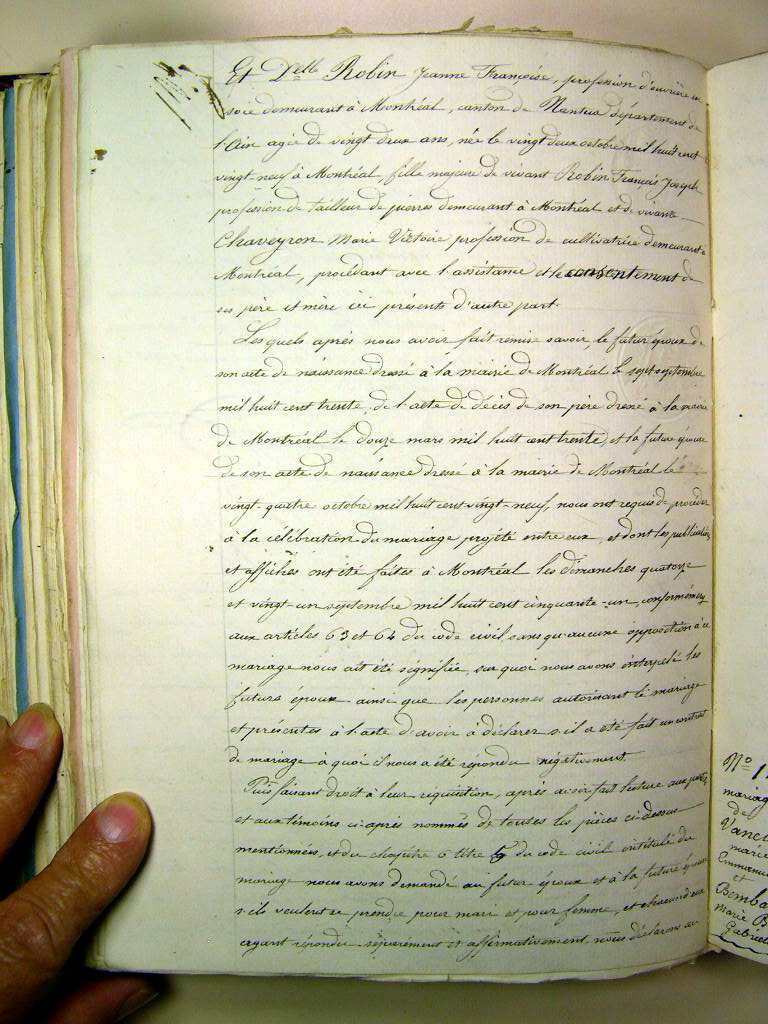 Et Delle Robin Jeanne Françoise, profession d'ouvrière en
soie demeurant à Montréal, canton de Nantua département de
l'Ain agée de vingt deux ans, née le vingt deux octobre mil huit cent
vingt neuf à Montréal, fille majeure de vivant Robin François Joseph
profession de tailleur de pierres demeurant à Montréal et de vivante
Chaveyron Marie Victoire profession de cultivatrice demeurant à
Montréal, procédant avec l'assistance et le consentement de
ses père et mère ici présents d'autre part.
Lesquels après nous avoir fait remise savoir, le futur époux de
son acte de naissance dressé à la mairie de Montréal le sept septembre
mil huit cent trente, de l'acte de décès de son père dressé à la mairie
de Montréal le douze mars mil huit cent trente, et la future épouse
de son acte de naissance dressé à la mairie de Montréal le
vingt-quatre octobre mil huit cent vingt-neuf, nous ont requis de procéder
à la célébration du mariage projété entre eux, et dont les publications
et affiches ont été faites à Montréal les dimanches quatorze
et vingt-un septembre mil huit cent cinquante-un, conformément
aux articles 63 et 64 du code civil sans qu'aucune opposition à ce
mariage nous ait été signifiée, sur quoi nous avons interpelé les
futurs époux ainsi que les personnes autorisant le mariage
et présentes à l'acte d'avoir à déclarer s'il a été fait un contrat
de mariage à quoi il nous a été répondu négativement.
Puis faisant droit à leur réquisition, après avoir fait lecture aux parties
et aux témoins ci-après nommés de toutes les pièces ci-dessus
mentionnées, et du chapitre 6 titre 5 du code civil intitulé du
mariage nous avons demandé au futur époux et à la future épouse
s'ils veulent se prendre pour mari et pour femme, et chacun d'eux
ayant répondu séparément et affirmativement, nous déclarons au
No 1
mariag
de
Vanc
marie
Emmanue
et
Bomba
Marie B
Gabriel